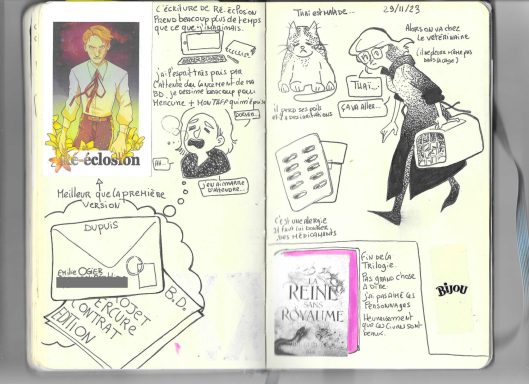 L'ÉCRITURE DE RÉ-ÉCLOSION
PREND BEAUCOUP PLUS DE TEMPS
QUE CE QUE J'IMAGINAIS.
J'AI L'ESPRIT TRÈS PRIS PAR
L'ATTENTE DU LANCEMENT DE MA
BD. JE DESSINE BEAUCOUP POUR
MERCURE + MON TAFF QUI M'ÉPUISE
DORMIR...
AH...
J'EN AI MARRE
D'ATTENDRE...
Ré-éclosion
MEILLEUR QUE LA PREMIÈRE
VERSION
DUPUIS
Emilie OGER
PROJET B.D.
MERCURE
CONTRAT
ÉDITION
THAÏ EST MALADE...
29/11/23
ALORS ON VA CHEZ
LE VÉTÉRINAIRE
THAÏ...
ÇA VA ALLER...
IL PERD SES POILS
C'EST UNE ALLERGIE
IL FAUT LUI DONNER
DES MÉDICAMENTS
LA
REINE
SANS
ROYAUME
FIN DE LA
TRILOGIE
PAS GRAND CHOSE
À DIRE.
J'AI PAS AIMÉ LES
PERSONNAGES
HEUREUSEMENT
QUE CES LIVRES SONT
BEAUX.
BIJOU